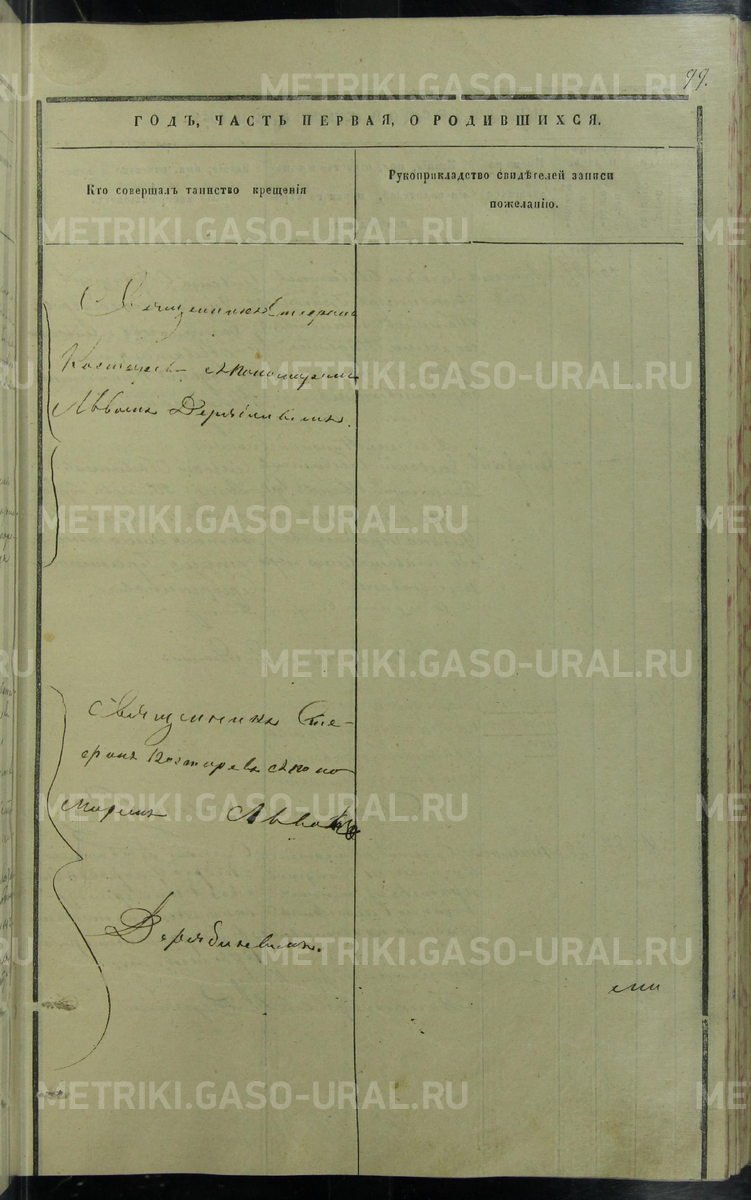 99.
ГОДЪ, ЧАСТЬ ПЕРВАЯ, О РОДИВШИХСЯ.
Кто совершалъ таинство крещенія
Рукоприкладство свидѣтелей записи
пожеланію.
Священникъ Стефанъ
Костаревъ съ пономаремъ
Львомъ Дерябинымъ.
Священникъ Сте-
фанъ Костаревъ съ поно
маремъ Львомъ
Дерябинымъ.
METRIKI.GASO-URAL.RU